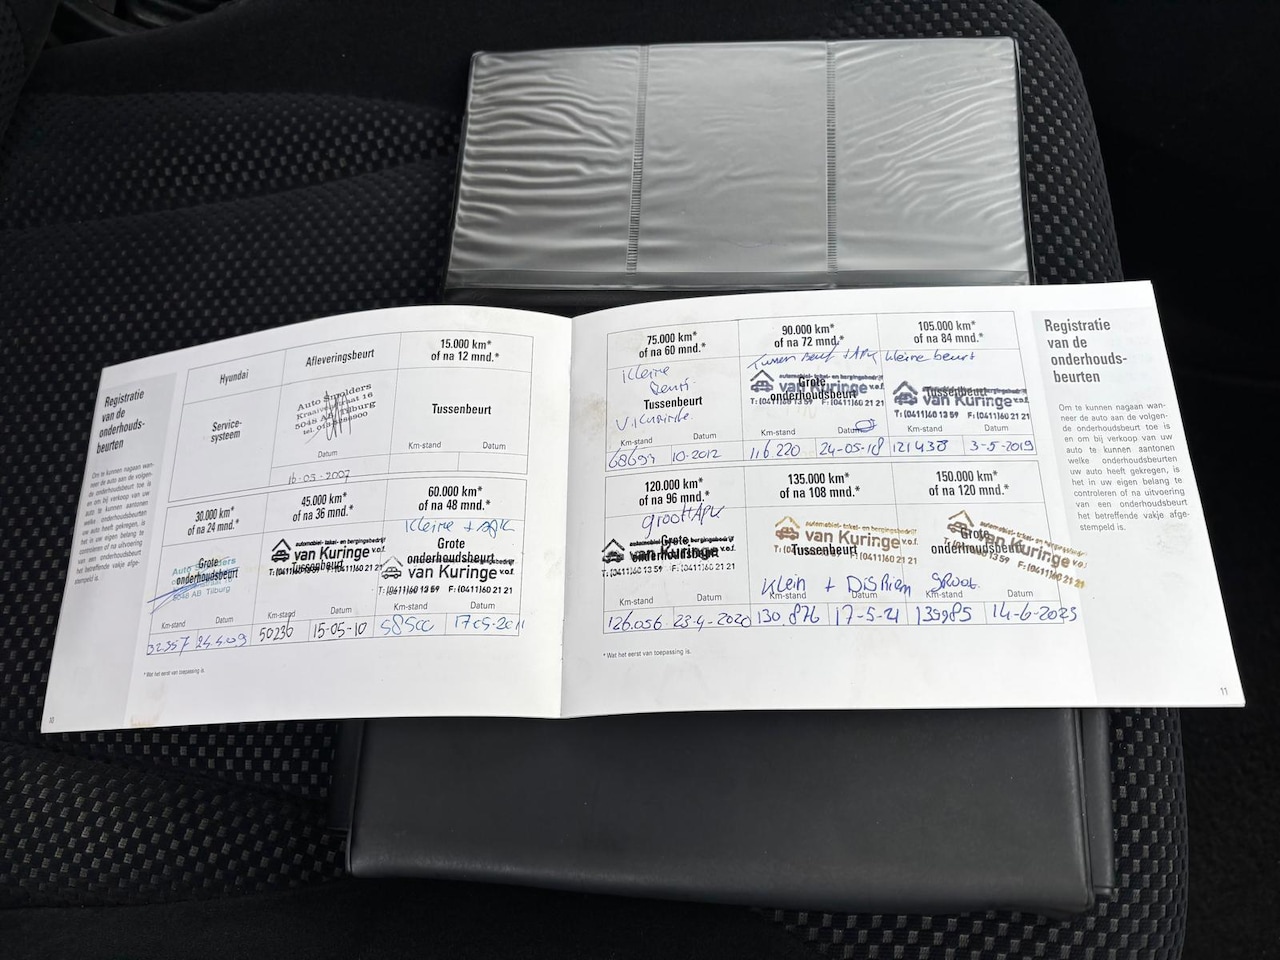 Registratie
van de
onderhouds-
beurten
Om te kunnen nagaan wan-
neer de auto aan de volgen-
de onderhoudsbeurt toe is
en om bij verkoop van uw
auto te kunnen aantonen
welke onderhoudsbeurten
uw auto heeft gekregen, is
het in uw eigen belang te
controleren of na uitvoering
van een onderhoudsbeurt
het betreffende vakje afge-
stempeld is.
Hyundai
Service-
systeem
Afleveringsbeurt
Auto Smolders
Kraaivenstraat 16
5048 AB Tilburg
Datum
16-05-2007
15.000 km*
of na 12 mnd.*
Tussenbeurt
Km-stand Datum
30.000 km*
of na 24 mnd.*
Grote
onderhoudsbeurt
5048 AB Tilburg
Km-stand Datum
32.957 24.4.09
45.000 km*
of na 36 mnd.*
automobiel- takel- en bergingsbedrijf
van Kuringe v.o.f.
Tussenbeurt
T: (0411)60 13 59 F: (0411)60 21 21
Km-stand Datum
50236 15-05-10
60.000 km*
of na 48 mnd.*
Kleine + APK
Grote
onderhoudsbeurt
van Kuringe v.o.f.
T: (0411)60 13 59 F: (0411)60 21 21
Km-stand Datum
58500
* Wat het eerst van toepassing is.
10
75.000 km*
of na 60 mnd.*
Kleine
Beurt
Tussenbeurt
Km-stand Datum
68694 10-2012
90.000 km*
of na 72 mnd.*
automobiel- takel- en bergingsbedrijf
Grote
van Kuringe v.o.f.
onderhoudsbeurt
T: (0411)60 13 59 F: (0411)60 21 21
Km-stand Datum
116.220 24-05-18
105.000 km*
of na 84 mnd.*
kleine beurt
Tussenbeurt
van Kuringe v.o.f.
T: (0411)60 13 59 F: (0411)60 21 21
Km-stand Datum
121438 3-5-2019
120.000 km*
of na 96 mnd.*
groot+APK
Grote
van Kuringe v.o.f.
onderhoudsbeurt
T: (0411)60 13 59 F: (0411)60 21 21
Km-stand Datum
126.056 23-4-2020
135.000 km*
of na 108 mnd.*
automobiel- takel- en bergingsbedrijf
van Kuringe v.o.f.
Tussenbeurt
T: (0411)60 13 59 F: (0411)60 21 21
Klein + Dis Riem
Km-stand Datum
130.876 17-5-21
150.000 km*
of na 120 mnd.*
Grote
van Kuringe v.o.f.
onderhoudsbeurt
F: (0411)60 21 21
groot
Km-stand Datum
139985 14-6-2023
* Wat het eerst van toepassing is.
Registratie
van de
onderhouds-
beurten
Om te kunnen nagaan wan-
neer de auto aan de volgen-
de onderhoudsbeurt toe is
en om bij verkoop van uw
auto te kunnen aantonen
welke onderhoudsbeurten
uw auto heeft gekregen, is
het in uw eigen belang te
controleren of na uitvoering
van een onderhoudsbeurt
het betreffende vakje afge-
stempeld is.
11